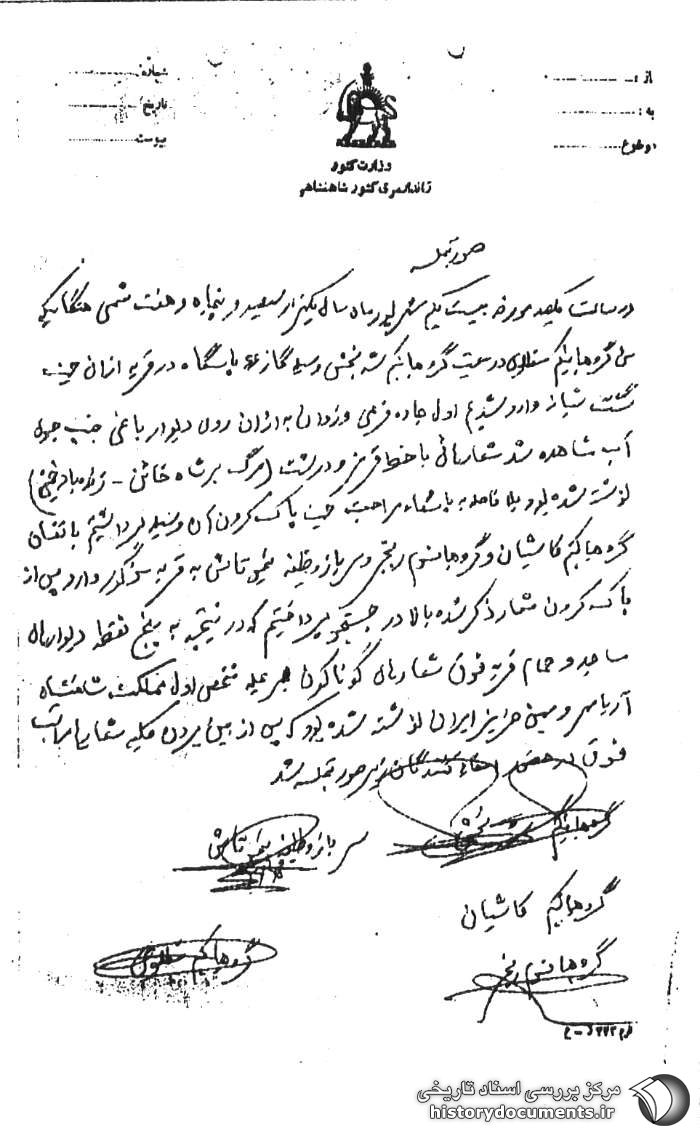 از :
به :
موضوع
شماره
تاریخ
پیوست
وزارت کشور
ژاندارمری کشور شاهنشاهی
صورتجلسه
در ساعت یکصد مورخه بیست یکم شهریور ماه سال یکهزار سیصد و پنجاه و هفت شمسی هنگامیکه
گروهبانیکم در معیت گروهبانیکم بخشی وسیله گاز پاسگاه در قریه ازان حین
گشت وارد شدیم اول جاده فرعی به ازان روی دیوار باغی جنب جوی
آب مشاهده شد شعارهائی با خط قرمز و درشت (مرگ بر شاه خائن - زنده باد خمینی)
نوشته شده بود بلافاصله به پاسگاه مراجعت جهت پاک کردن آن وسیله برداشتیم باتفاق
گروهبانیکم کاشیان و گروهبانسوم رنجبر و سرباز وظیفه به قریه وارد پس از
پاک کردن شعار ذکر شده بالا در جستجو پرداختیم که در نتیجه به پنج نقطه دیوارهای
مساجد و حمام قریه فوق شعارهای گوناگون بر علیه شخص اول مملکت شاهنشاه
آریامهر و میهن عزیز ایران نوشته شده بود که پس از بین بردن کلیه شعارها مراتب
فوق در حضور امضاء کنندگان زیر صورتجلسه شد
گروهبانیکم بخشی
سرباز وظیفه
گروهبانیکم کاشیان
گروهبانیکم
گروهبانسوم رنجبر
مرکز بررسی اسناد تاریخی
historydocuments.ir